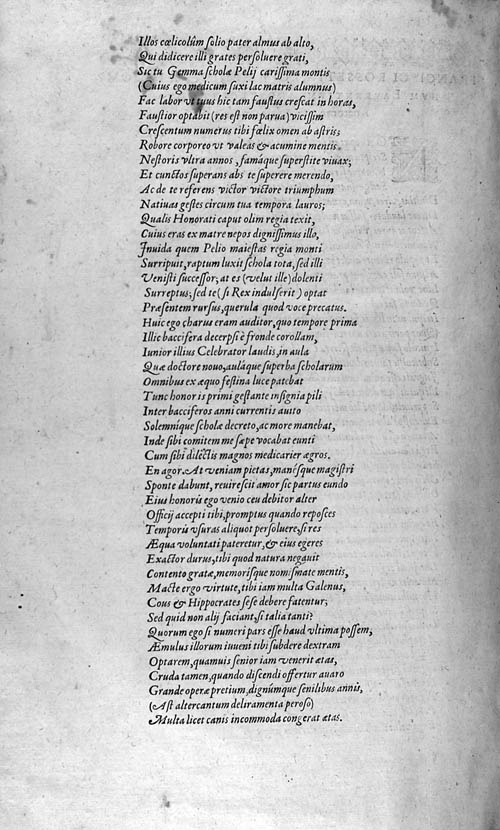 Illos cœlicolûm solio pater almus ab alto,
Qui didicere illi grates persoluere grati,
Sic tu Gemma scholæ Pelij carissima montis
(Cuius ego medicum suxi lac matris alumnus)
Fac labor vt tuus hic tam faustus crescat in horas,
Faustior optabit (res est non parua) vicissim
Crescentum numerus tibi fœlix omen ab astris;
Robore corporeo vt valeas & acumine mentis.
Nestoris vltra annos, famáque superstite viuax;
Et cunctos superans abs te superere merendo,
Ac de te referens victor victore triumphum
Natiuas gestes circum tua tempora lauros;
Qualis Honorati caput olim regia texit,
Cuius eras ex matre nepos dignissimus illo,
Inuida quem Pelio maiestas regia monti
Surripuit, raptum luxit schola tota, sed illi
Venisti successor; at es (velut ille) dolenti
Surreptus; sed te (si Rex indulserit) optat
Præsentem rursus, querula quod voce precatus.
Huic ego charus eram auditor, quo tempore prima
Illic baccifera decerpsi è fronde corollam,
Iunior illius Celebrator laudis, in aula
Quæ doctore nouo, auláque superba scholarum
Omnibus ex æquo festina luce patebat
Tunc honoris primi gestante insignia pili
Inter bacciferos anni currentis auito
Solemnique scholæ decreto, ac more manebat,
Inde sibi comitem me sæpe vocabat eunti
Cum sibi dilectis magnos medicarier ægros.
En agor. At veniam pietas, manésque magistri
Sponte dabunt, reuirescit amor sic partus eundo
Eius honoris ego venio ceu debitor alter
Officij accepti tibi, promptus quando reposces
Temporis vsuras aliquot persoluere, si res
Æqua voluntati pateretur, & eius egeres
Exactor durus, tibi quod natura negauit
Contento gratæ, memorisque nomismate mentis,
Macte ergo virtute, tibi iam multa Galenus,
Cous & Hippocrates sese debere fatentur;
Sed quid non alij faciant, si talia tanti?
Quorum ego si numeri pars esse haud vltima possem,
Æmulus illorum iuueni tibi subdere dextram
Optarem, quamuis senior iam venerit ætas,
Cruda tamen, quando discendi offertur auaro
Grande operæ pretium, dignúmque senilibus annis,
(Ast altercantum deliramenta peroso)
Multa licet canis incommoda congerat ætas.